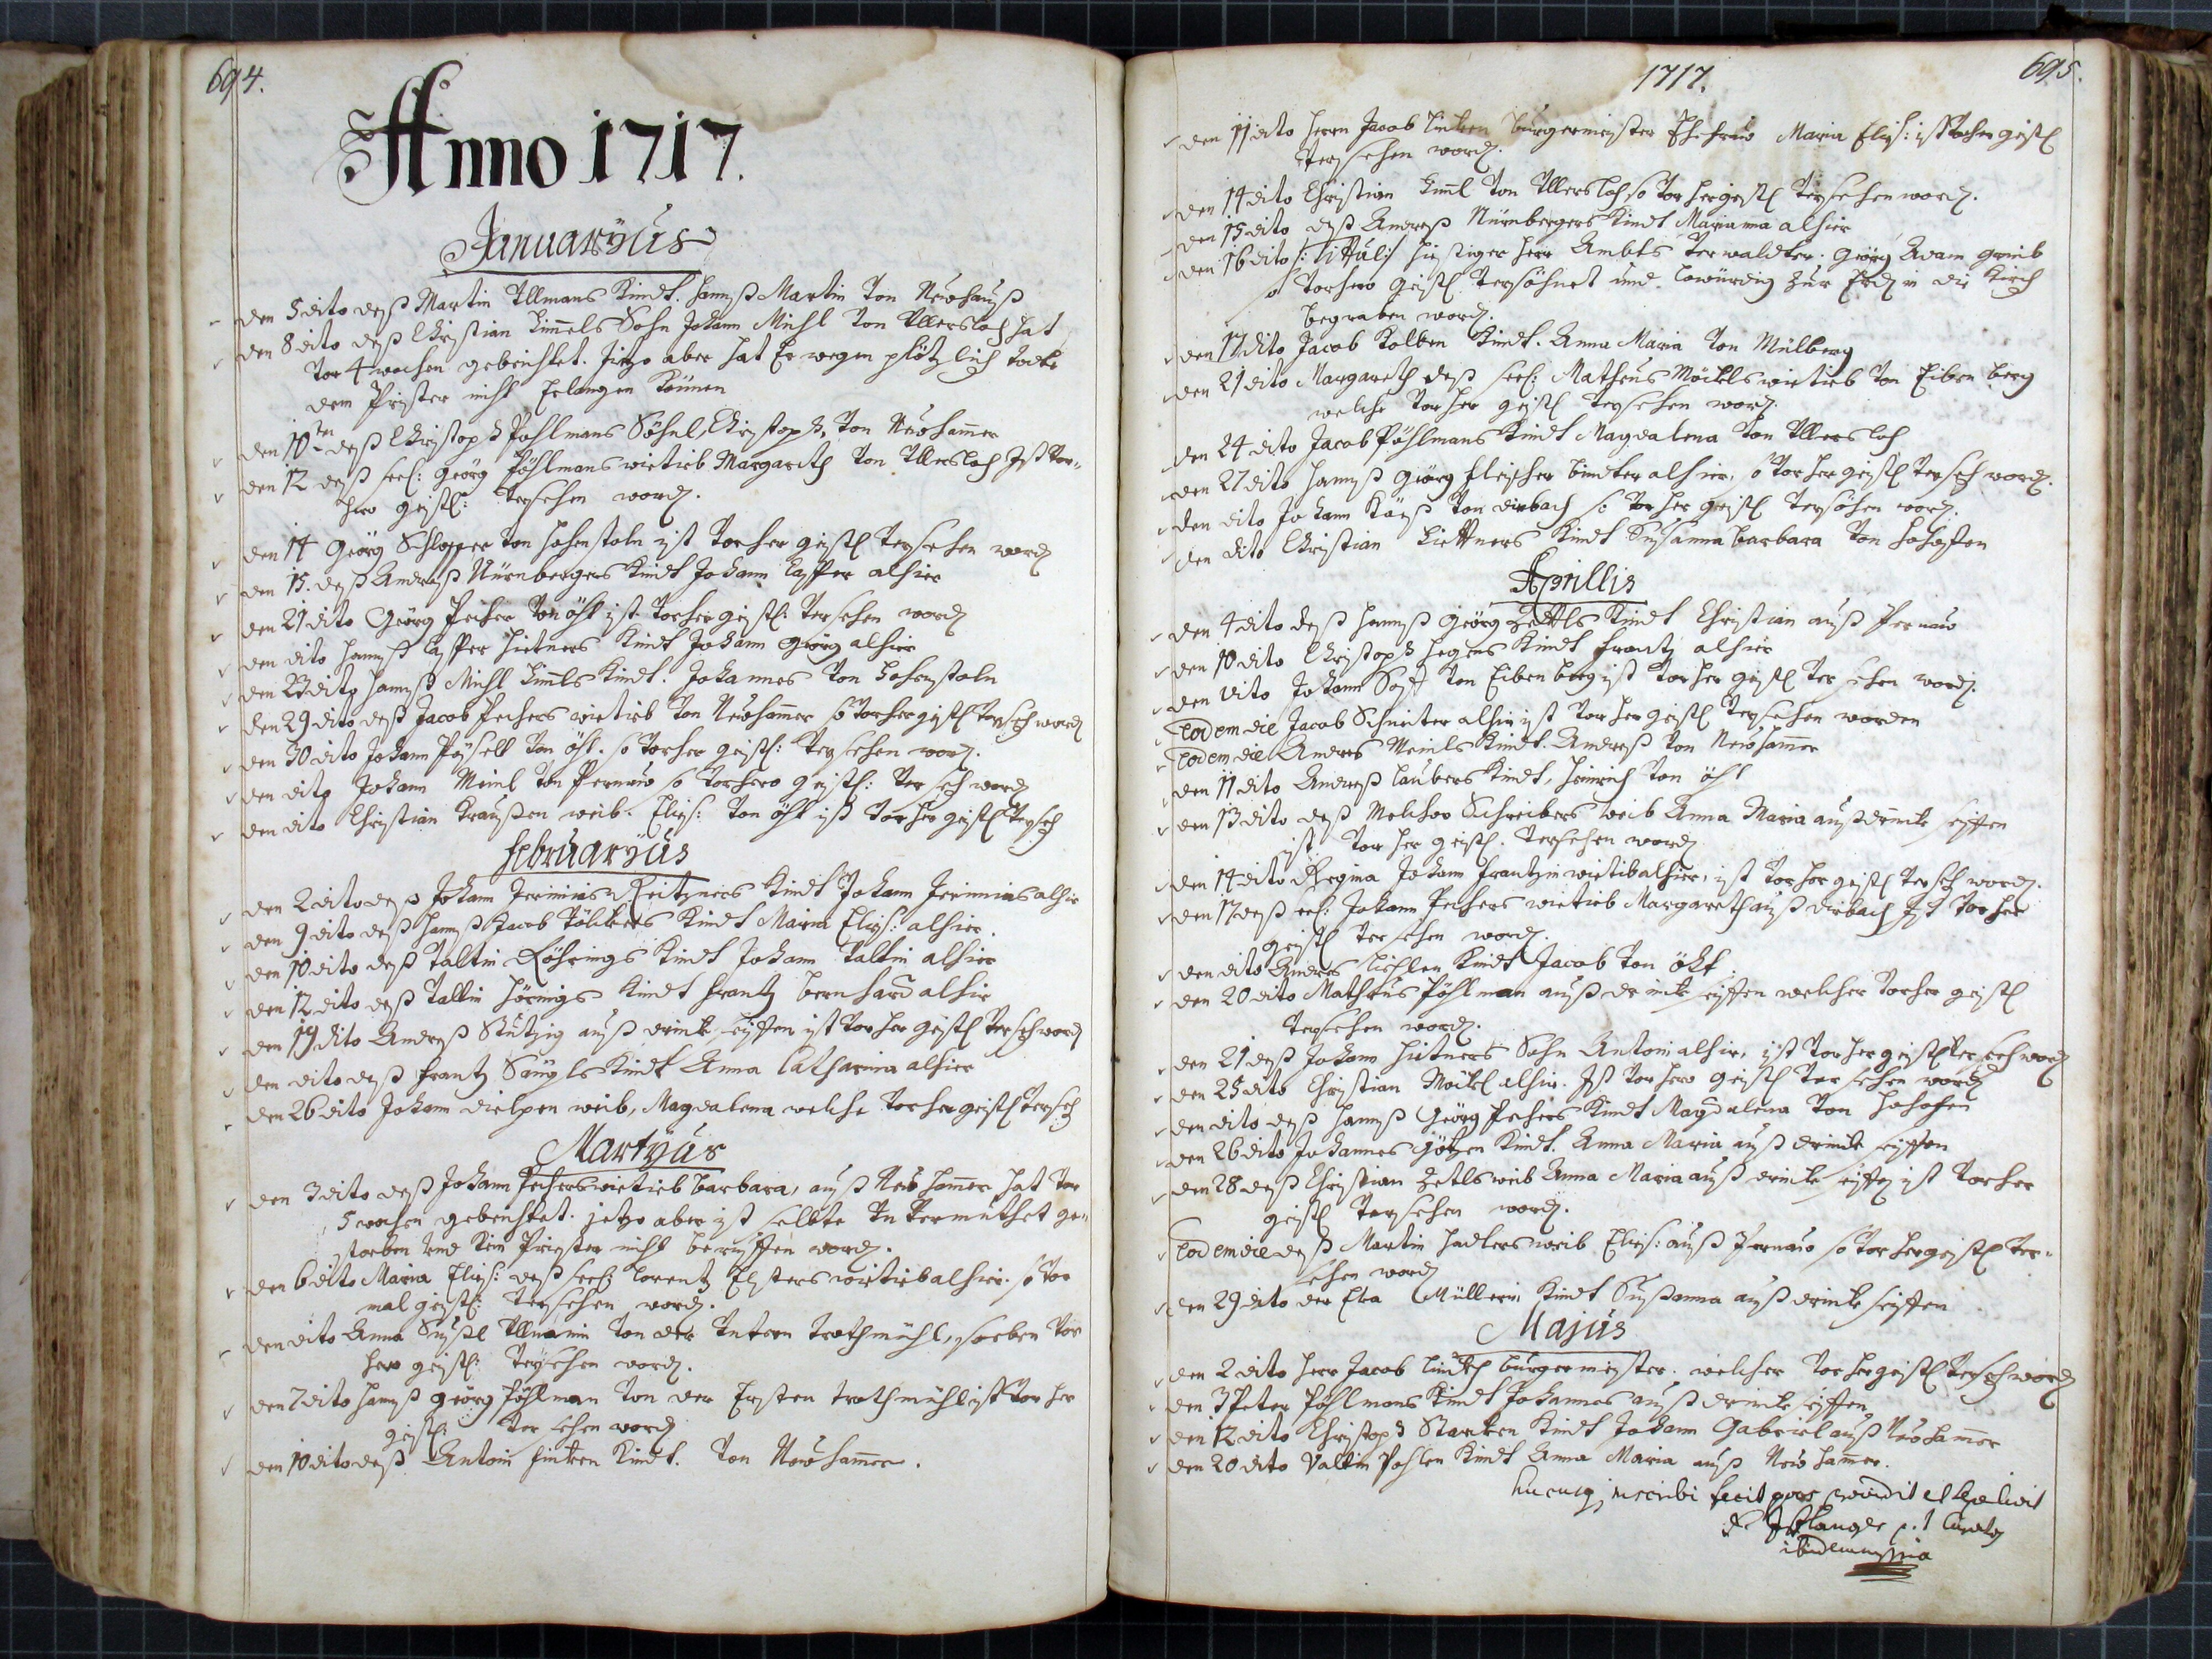 694.
Anno 1717.
Januaryus
den 5 dito deß Martin Ullmans Kindt. Hannß Martin von Neuhauß
den 8 dito deß Christian Kimmels Sohn Johann Michl von Ullersloh hat
vor 4 wochen gebeichtet. jetzo aber hat Er wegen plötzlich todts
dem Prister nicht Erlangen können
den 10ten deß Christoph Pöhlmans Söhnl, Christoph, von Neuhammer
den 12 deß seel: Georg Pöhlmans wietieb Margareth von Ullersloh Ist vor-
hero geistl: versehen word.
den 14 Georg Schlosser von hohenstoln ist vorher geistl versehen word
den 15. deß Andreß Nürnbergers Kindt Johann Casper alhier
den 21 dito Georg Pecher von öht ist vorher geistl: versehen word
den dito Hannß Casper Hietners Kindt Johann Georg alhier
den 23 dito Hannß Michl Kimls Kindt. Johannes von Hohenstoln
den 29 dito deß Jacob Pechers wietieb von Neuhammer so vorher geistl verseh word
den 30 dito Johann Peysell von öht. so vorher geistl: versehen word.
den dito Johann Meinl von Pernau so vorhero geistl: verseh word
den dito Christian Kraußen weib. Elis: von öht ist vorher geistl verseh
februaryus
den 2 dito deß Johann Jerimias Reitzners Kindt Johann Jerimias alhir
den 9 dito deß Hannß Jacob Pölckers Kindt Maria Elis: alhier.
den 10 dito deß Valtin Löhrings Kindt Johann Valtin alhier
den 12 dito deß Valtin Hörnigs Kindt Frantz Bernhard alhir
den 19 dito Andreß Stützig auß drinckseiffen ist vorher geistl verseh word
den dito deß Frantz Sängls Kindt Anna Catharina alhier
den 26 dito Johann dielpen weib, Magdalena welche vorher geistl verseh
Martyus
den 3 dito deß Johann Pechers wietieb Barbara, auß Neuhammer hat vor
5 wochen gebeichtet. jetzo aber ist selbte unvermuthet ge-
storben und kein Priester nicht beruffen word.
den 6 dito Maria Elis: deß seel: Lorentz Elsters wietieb alhir. so vor
mal geistl: versehen word.
den dito Anna Susl Ullmanin von der Untern Rothmühl, so eben vor
hero geistl: versehen word.
den 7 dito Hannß Georg Pöhlman von der Ersten Rothmühl ist vorher
geistl: versehen word
den 10 dito deß Antoni Fincken Kindt. von Neuhammer.
1717.
695.
den 11 dito Herrn Jacob Lincken Burgermeister Ehefrau Maria Elis: ist vorher geistl
versehen word.
den 14 dito Christian Kiml von Ullersloh so vorher geistl versehen word.
den 15 dito deß Andreß Nürnbergers Kindt Marianna alhier
den 16 dito /: Titul:/ hiesiger Herr Ambts verwaldter. Georg Adam
so vorhero geistl versöhnet und zur Erd in die Kirch
begraben word.
den 17 dito Jacob Kolben Kindt. Anna Maria von Mülberg
den 21 dito Margareth deß seel: Matheus Möckls wietieb von Eibenberg
welche vorher geistl versehen word.
den 24 dito Jacob Pöhlmans Kindt Magdalena von Ullersloh
den 27 dito Hannß Georg Fleischer binder alhier. so vorher geistl verseh word.
den dito Johann Käyß von dirbach so vorher geistl versehen word.
den dito Christian Liettners Kindt Susanna Barbara von Hohofen
Aprillis
den 4 dito deß Hannß Georg Zettls Kindt Christian auß Pernau
den 10 dito Christoph Hegers Kindt Frantz alhier
den dito Johann von Eibenberg ist vorher geistl versehen word.
Eodem die Jacob Schreiter alhir ist vorher geistl versehen worden
Eodem die Andres Meinls Kindt. Andreß von Neuhammer
den 11 dito Andreß Laubers Kindt, Heinrich von öht
den 13 dito deß Melchor Schreibers weib Anna Maria auß drinckseiffen
ist vorher geistl. versehen word
den 14 dito Regina Johann Frantzin wietib alhier, ist vorher geistl verseh word.
den 17 deß seel: Johann Pechers wietieb Margareth auß dirbach Ist vorher
geistl versehen word.
den dito Andres Kindt Jacob von öht
den 20 dito Matheus Pöhlman auß drinckseiffen welcher vorher geistl
versehen word.
den 21 deß Johann Hietners Sohn Antoni alhir, ist vorher geistl verseh word
den 25 dito Christian Möckl alhir. Ist vorhero geistl versehen word
den dito deß Hannß Georg Pechers Kindt Magdalena von Hohofen
den 26 dito Johannes Götzen Kindt. Anna Maria auß drinckseiffen
den 28 deß Christian Zetls weib Anna Maria auß drinckseiffen ist vorher
geistl versehen word.
Eodem die deß Martin Hadlers weib Elis: auß Pernau so vorher geistl ver-
sehen word
den 29 dito der Eva Müllerin Kindt Sußanna auß drinckseiffen
Majus
den 2 dito Herr Jacob Linckh burgermeister. welcher vorher geistl verseh word
den 3 Peter Pöhlmans Kindt Johannes auß drinckseiffen
den 12 dito Christoph Starken Kindt Johann Gabriel auß Neuhammer
den 20 dito Valtin Pohlen Kindt Anna Maria auß Neuhammer.
hucusq; inscribi fecit